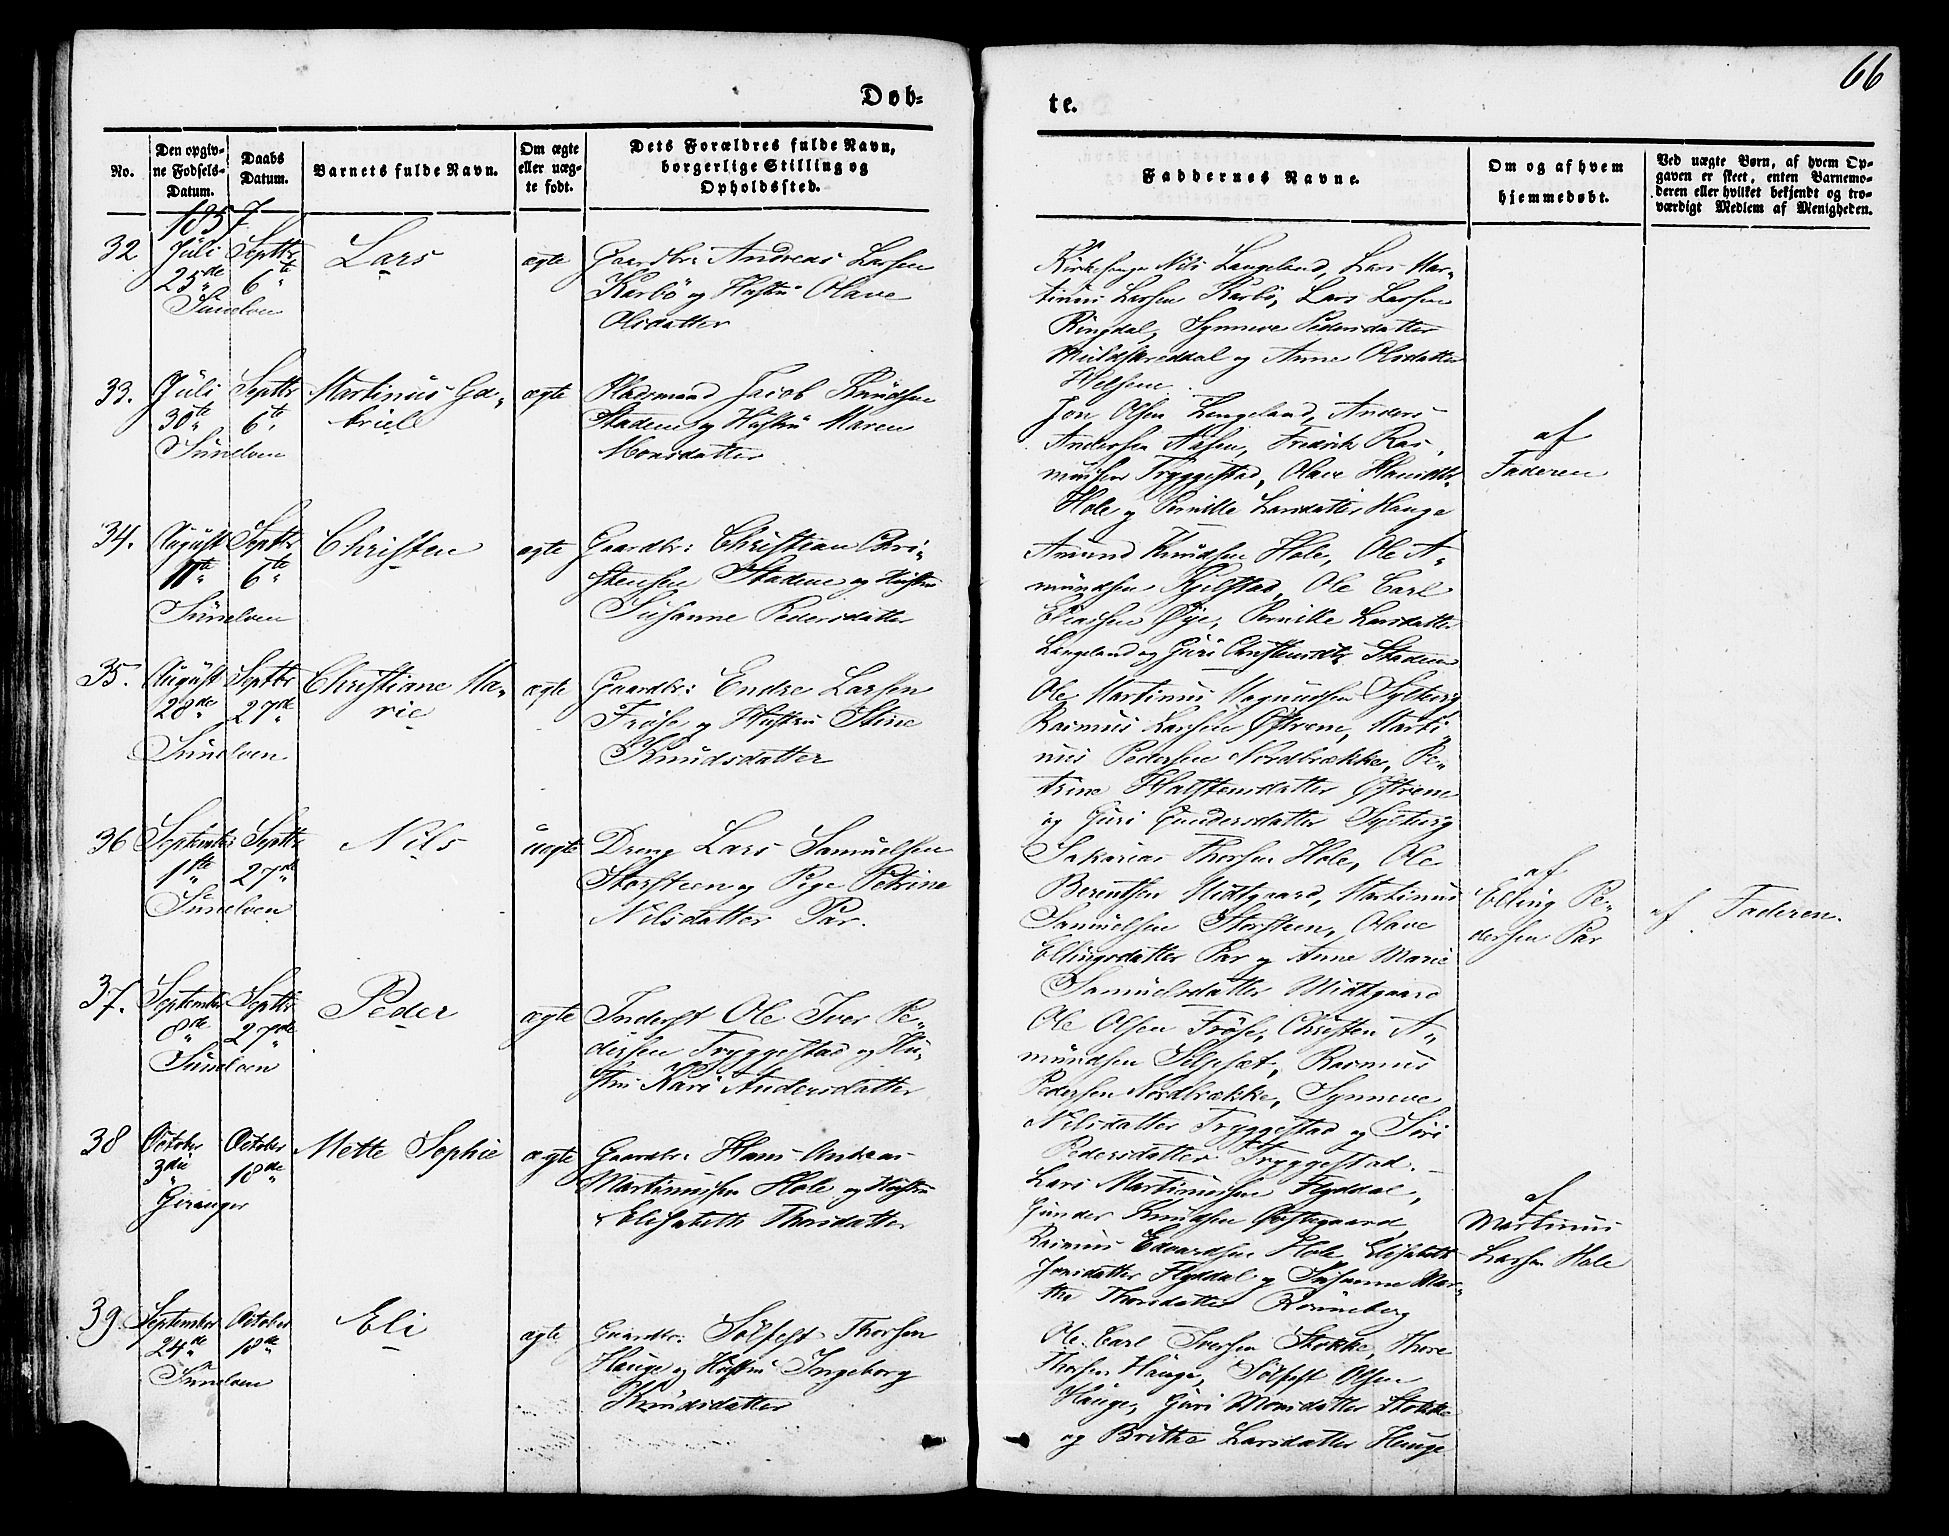 66
Døb-
te.
No.
Den opgiv-
ne Fødsels-
Datum.
Daabs
Datum.
Barnets fulde Navn.
Om ægte
eller uæg-
te født.
Dets Forældres fulde Navn,
borgerlige Stilling og
Opholdssted.
Faddernes Navne.
Om og af hvem
hjemmedøbt.
Ved uægte Børn, af hvem Op-
gaven er skeet, enten Barnemo-
deren eller hvilket bekjendt og tro-
værdigt Medlem af Menigheden.
1857
32
Juli
25de
Sunelven
Septbr
6te
Lars
ægte
Gaardbr: Andreas Larsen
Karbö og Hustru Olave
Olsdatter
Kirkesanger Nils Langeland, Lars Mar-
tinus Larsen Karbö, Lars Larsen
Ringdal, Synneve Pedersdatter
Muldskreddal og Anne Olsdatter
Helsem
33.
Juli
30te
Sunelven
Septbr
6te
Martinus Ga-
briel
ægte
Pladsmand Jacob Knudsen
Stadem og Hustru Maren
Monsdatter
Jon Olsen Langeland, Anders
Andersen Aasen, Fredrik Ras-
musen Tryggestad, Olave
Hole og Pernille Larsdatter Hauge
af
Faderen
34.
August
11te
Sunelven
Septbr
6te
Christen
ægte
Gaardbr: Christian Chri-
stensen Stadem og Hustru
Susanne Pedersdatter
Amund Knudsen Hole, Ole A-
mundsen Kjelstad, Ole Carl
Eliassen Øye, Pernille Larsdatter
Langeland og Guri Christensdtr Stadem
35.
August
28de
Sunelven
Septbr
27de
Christiane Ma-
rie
ægte
Gaardbr: Endre Larsen
Fröse og Hustru Stine
Knudsdatter
Ole Martinus Magnusen Sylteviig
Rasmus Larsen Ofstrem, Marti-
nus Pedersen Nordbrække, Pe-
trine Halstensdatter Ofstrem
og Guri Gundersdatter Sylteviig
36
September
1ste
Sunelven
Septbr
27de
Nils
uægte
Dreng Lars Samuelsen
Storsteen og Pige Petrine
Nilsdatter Par.
Sakarias Thorsen Hole, Ole
Berentsen Midtgaard, Martinus
Samuelsen Storsteen, Olave
Ellingsdatter Par og Anne Marie
Samuelsdatter Midtgaard
af
Elling Pe-
dersen Par
af Faderen.
37.
September
8de
Sunelven
Septbr
27de
Peder
ægte
Inderst Ole Iver Pe-
dersen Tryggestad og Hu-
stru Kari Andersdatter
Ole Olsen Fröse, Christen A-
mundsen Selsæt, Rasmus
Pedersen Nordbrække, Synneve
Nilsdatter Tryggestad og Siri
Pedersdatter Tryggestad.
38
October
3die
Geranger
October
18de
Mette Sophie
ægte
Gaardbr: Hans Andreas
Martinusen Hole og Hustru
Elisabeth Thorsdatter
Lars Martinusen Flyddal,
Gunder Knudsen Vestregaard,
Rasmus Edvardsen Hole, Elisabeth
Jonsdatter Flyddal og Susanne Mar-
the Thorsdatter Rönneberg
af
Martinus
Larsen Hole
39
September
24de
Sunelven
October
18de
Eli
ægte
Gaardbr: Sölfest Thorsen
Hauge og Hustru Ingeborg
Knudsdatter
Ole Carl Iversen Stokke, Thore
Thorsen Hauge, Sölfest Olsen
Hauge, Guri Monsdatter Stokke
og Brithe Larsdatter Hauge